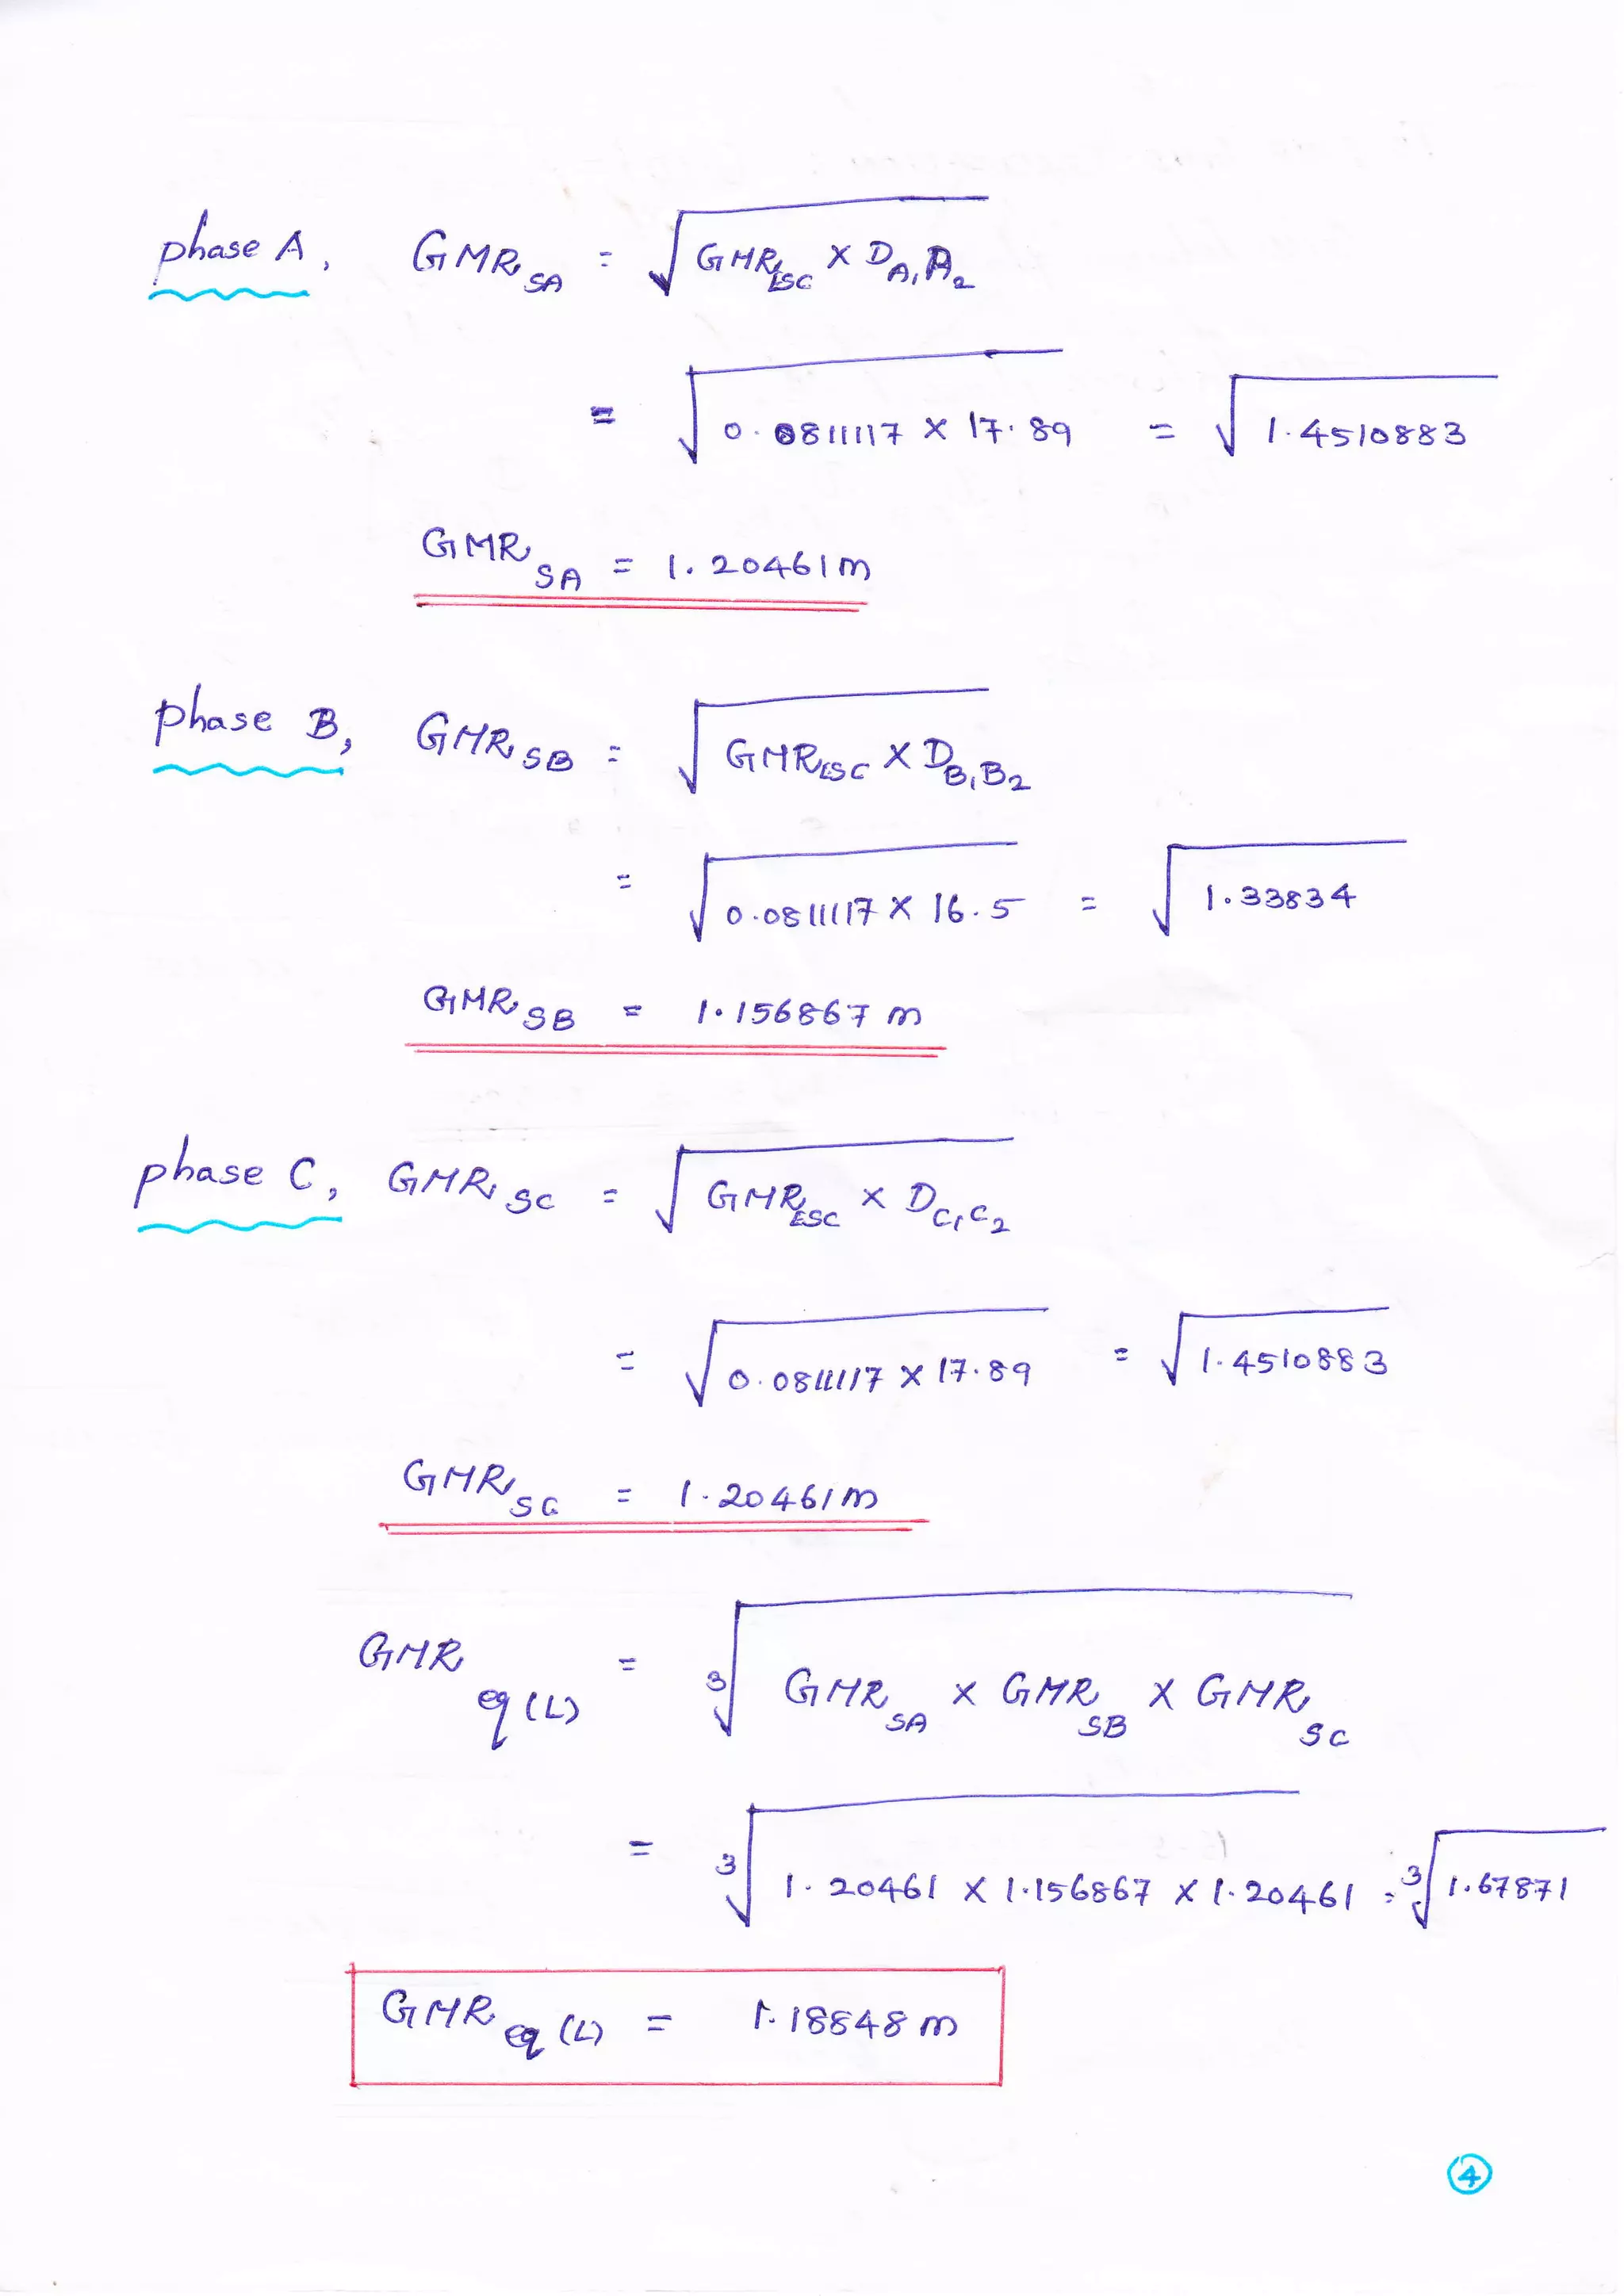 phase A, GMR SA = √ GMR LSC X D A1 A2
= √ 0.0811117 X 17.89 = √ 1.4510883
GMR SA = 1.20461 m
phase B, GMR SB = √ GMR LSC X D B1 B2
= √ 0.0811117 X 16.5 = √ 1.33834
GMR SB = 1.156867 m
phase C, GMR SC = √ GMR LSC X D C1 C2
= √ 0.0811117 X 17.89 = √ 1.4510883
GMR SC = 1.20461 m
GMR eq (L) = 3√ GMR SA X GMR SB X GMR SC
= 3√ 1.20461 X 1.156867 X 1.20461 = 3√ 1.67871
GMR eq (L) = 1.18848 m
4